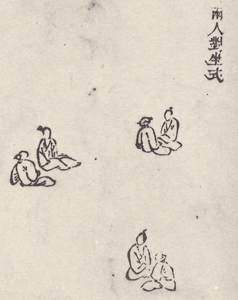 兩人對坐式